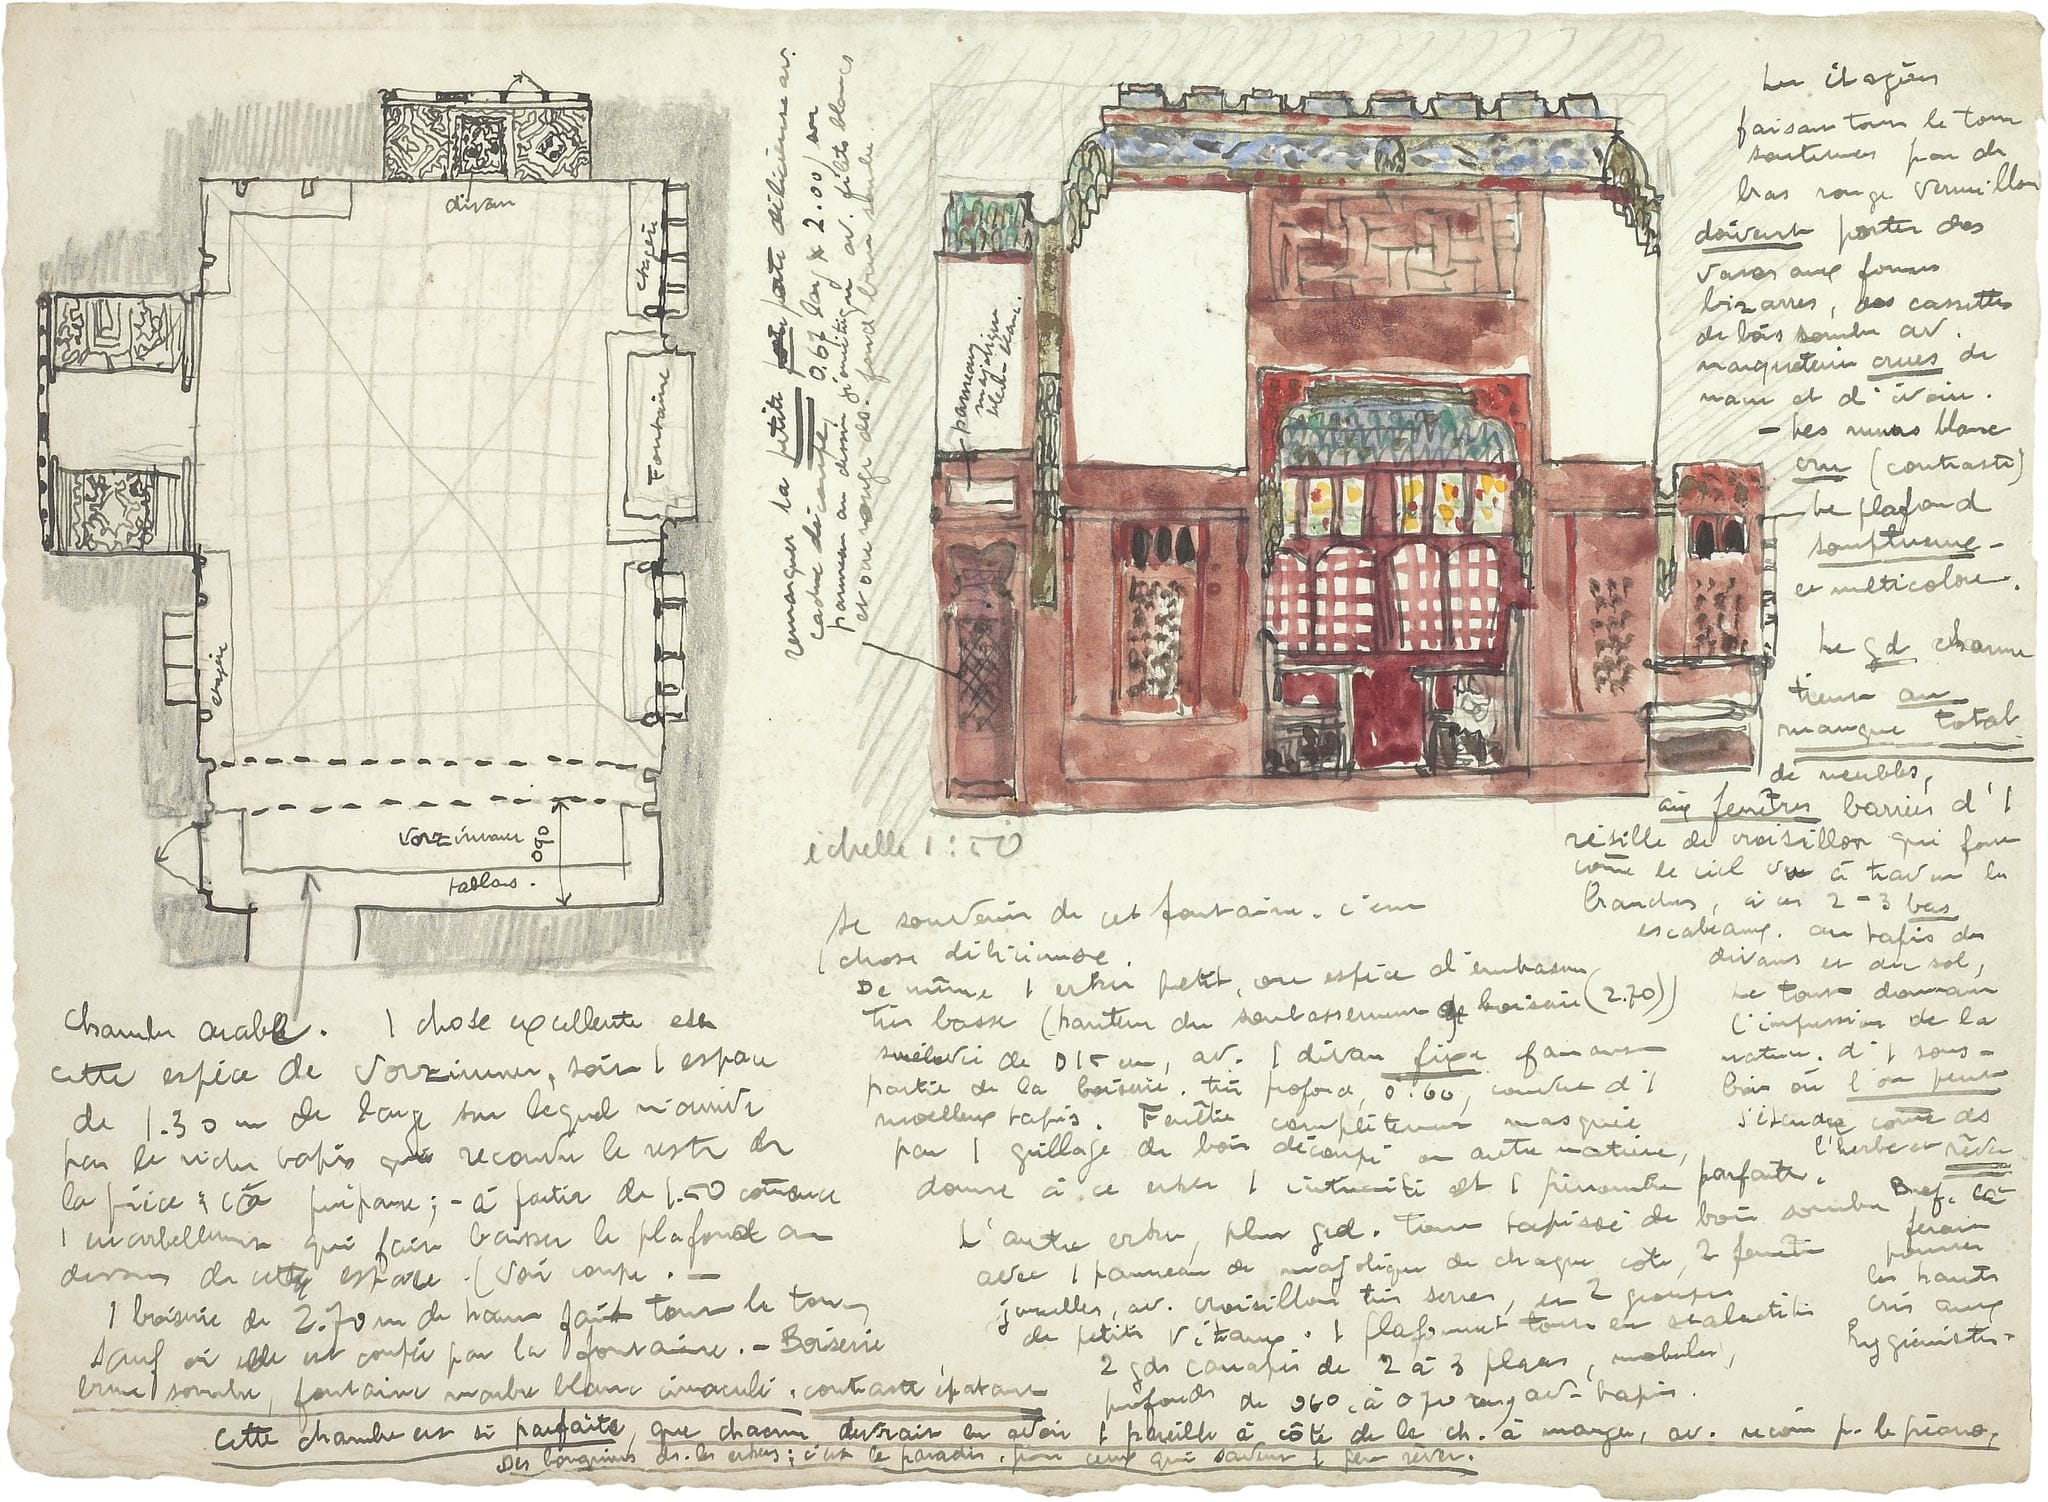 divan
étagère
Fontaine
étagère
Vorzimmer
0.90
tablar.
remarquer la petite porte délicieuse av.
cadre décoré, 0.67 larg x 2.00, son
panneau au dessin géométriq av. filets blancs
et ou rouge ds. fond brun sombre.
panneaux
majolique
bleu-blanc.
échelle 1:50
Les étagères
faisant tout le tour
soutenues par des
bras rouge vermillon
doivent porter des
vases aux formes
bizarres, des cassettes
de bois sombre av.
marqueterie crues de
nacre et d'ivoire.
– Les murs blanc
cru (contraste)
Le plafond
somptueux –
et multicolore.
Le gd charme
tient au
manque total
de meubles,
aux fenêtres barrées d'1
résille de croisillon qui font
comme le ciel vu à travers les
branches, à ces 2-3 bas
escabeaux. au tapis des
divans et du sol,
Le tout donnant
l'impression de la
nature. d'1 sous-
bois où l'on peut
s'étendre comme ds
l'herbe et rêver
Bref. ça
ferait
pousser
les hauts
cris aux
hygiénistes.
Chambre arabe. 1 chose excellente est
cette espèce de Vorzimmer, soit 1 espace
de 1.30 m de large sur lequel n'arrive
pas le riche tapis qui recouvre le reste de
la pièce : ça prépare; – à partir de 1.50 commence
1 encorbellement qui fait baisser le plafond au
dessus de cette espace. (voir coupe. –
1 boiserie de 2.70 m de haut fait tout le tour,
sauf où elle est coupée par la fontaine. – Boiserie
sombre, fontaine marbre blanc immaculé. contraste épatant
Se souvenir de cet fontaine. c'est
1 chose délicieuse.
De même 1 erker petit, ou espèce d'embrasure
très basse (hauteur du soubassement de boiserie (2.70))
surélevé de 0 15 cm, av. 1 divan fixe faisant
partie de la boiserie. très profond, 0.60, couvert d'1
moelleux tapis. Fenêtre complètement masquée
par 1 grillage de bois découpé ou autre matière,
donne à ce erker 1 intimité et 1 pénombre parfaite.
L'autre erker, plus grd. tout tapissé de bois sombre
avec 1 panneau de majolique de chaque côté, 2 fenêtres
jumelles, av. croisillons très serrés, en 2 groupes
de petits vitraux. 1 plafonnet tout en stalactites
2 gds canapés de 2 à 3 places, mobiles,
profonds de 060 à 070 av. tapis.
Cette chambre est si parfaite, que chacun devrait en avoir 1 pareille à côté de la ch. à manger, av. recoin p. le piano,
Des bouquins ds. les erkers; c'est le paradis. pour ceux qui savent 1 peu rêver.